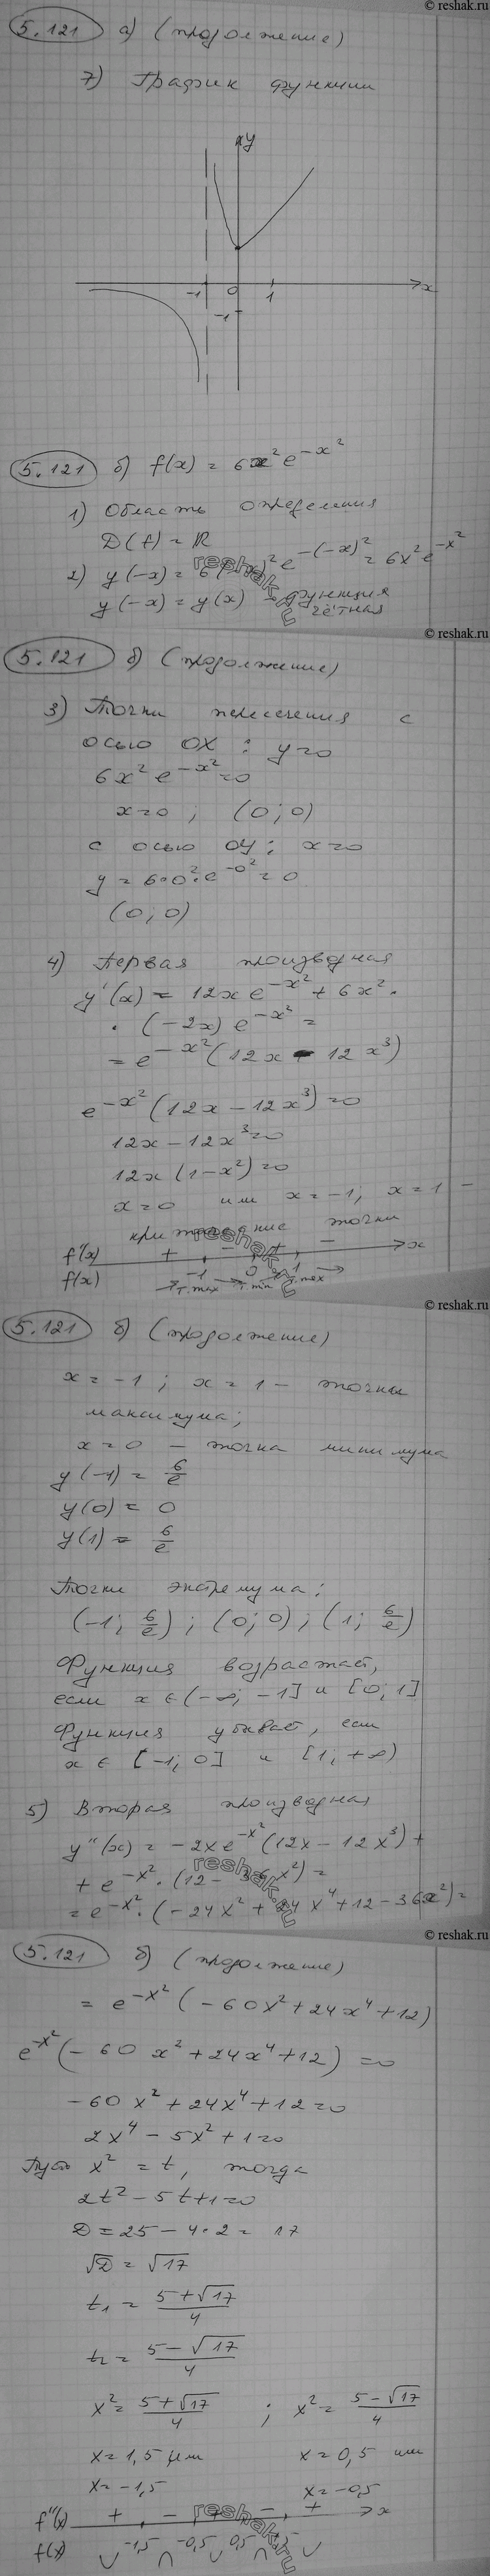 © reshak.ru
5.121 а) (продолжение)
7) График функции
y
-1 0 1 x
-1
5.121 б) f(x) = 6x² e^{-x²}
1) Область определения
D(f) = ℝ
2) y(-x) = 6(-x)² e^{-(-x)²} = 6x² e^{-x²}
y(-x) = y(x) - функция
чётная
reshak.ru
© reshak.ru
5.121 б) (продолжение)
3) Точки пересечения с
осью OX : y=0
6x² e^{-x²} =0
x=0 ; (0; 0)
с осью OY: x=0
y = 6·0²·e^{-0²} = 0
(0; 0)
4) Первая производная
y'(x) = 12x e^{-x²} + 6x² ·
· (-2x) e^{-x²} =
= e^{-x²} (12x - 12x³)
e^{-x²} (12x - 12x³) =0
12x - 12x³ =0
12x (1-x²) =0
x=0 или x=-1; x=1 -
критические точки
f'(x) + - + - x
f(x) -1 т.max 0 т.min 1 т.max
reshak.ru
© reshak.ru
5.121 б) (продолжение)
x = -1 ; x = 1 - точки
максимума;
x=0 - точка минимума
y(-1) = 6/e
y(0) = 0
y(1) = 6/e
Точки экстремума:
(-1; 6/e) ; (0; 0) ; (1; 6/e)
Функция возрастает,
если x ∈ (-∞; -1] и [0; 1]
Функция убывает, если
x ∈ [-1; 0] и [1; +∞)
5) Вторая производная
y''(x) = -2x e^{-x²} (12x - 12x³) +
+ e^{-x²} · (12 - 36x²) =
= e^{-x²} · (-24x² + 24x⁴ + 12 - 36x²) =
reshak.ru
© reshak.ru
5.121 б) (продолжение)
= e^{-x²} (-60x² + 24x⁴ + 12)
e^{-x²} (-60x² + 24x⁴ + 12) =0
-60x² + 24x⁴ + 12 =0
2x⁴ - 5x² + 1 =0
Пусть x² = t, тогда
2t² - 5t + 1 =0
D = 25 - 4·2 = 17
√D = √17
t₁ = (5+√17)/4
t₂ = (5-√17)/4
x² = (5+√17)/4 ; x² = (5-√17)/4
x=1,5 или x=0,5 или
x=-1,5 x=-0,5
f''(x) + - + - + x
f(x) ∪ -1,5 ∩ -0,5 ∪ 0,5 ∩ 1,5 ∪
reshak.ru